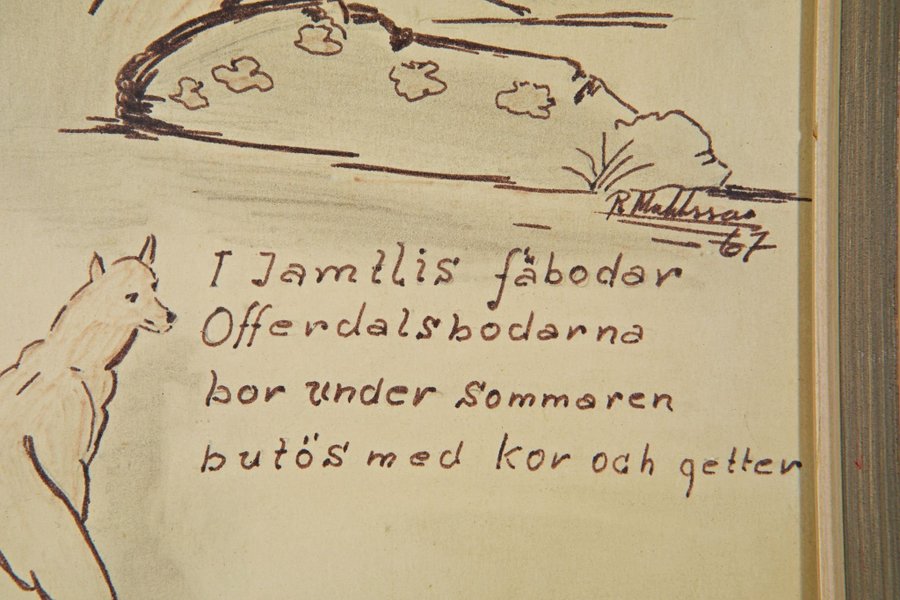 R. Mahlssa
67
I Jamtlis fäbodar
Offerdalsbodarna
bor under sommaren
butös med kor och getter